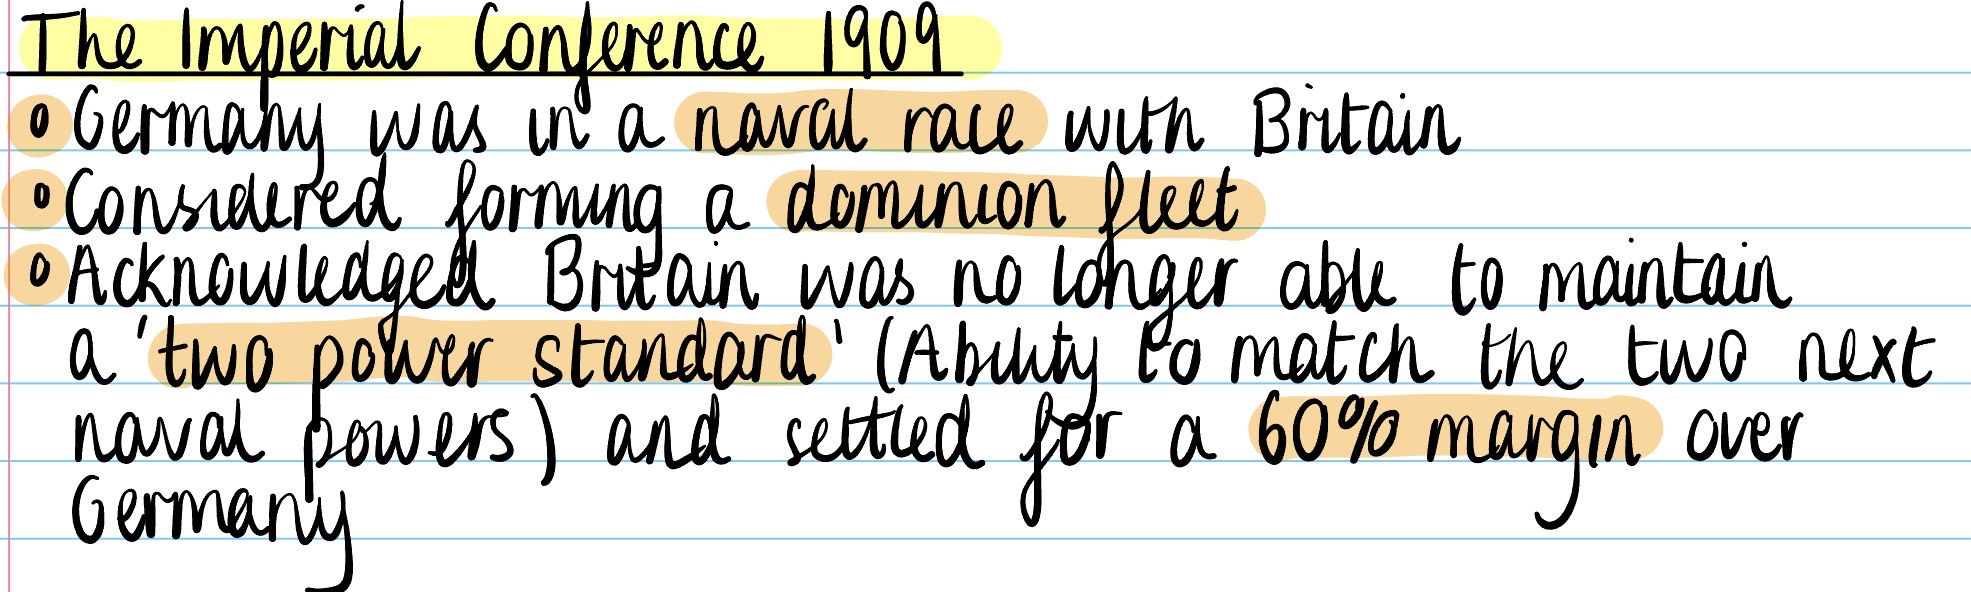 The Imperial Conference 1909
o Germany was in a naval race with Britain
o Considered forming a dominion fleet
o Acknowledged Britain was no longer able to maintain
a 'two power standard' (Ability to match the two next
naval powers) and settled for a 60% margin over
Germany